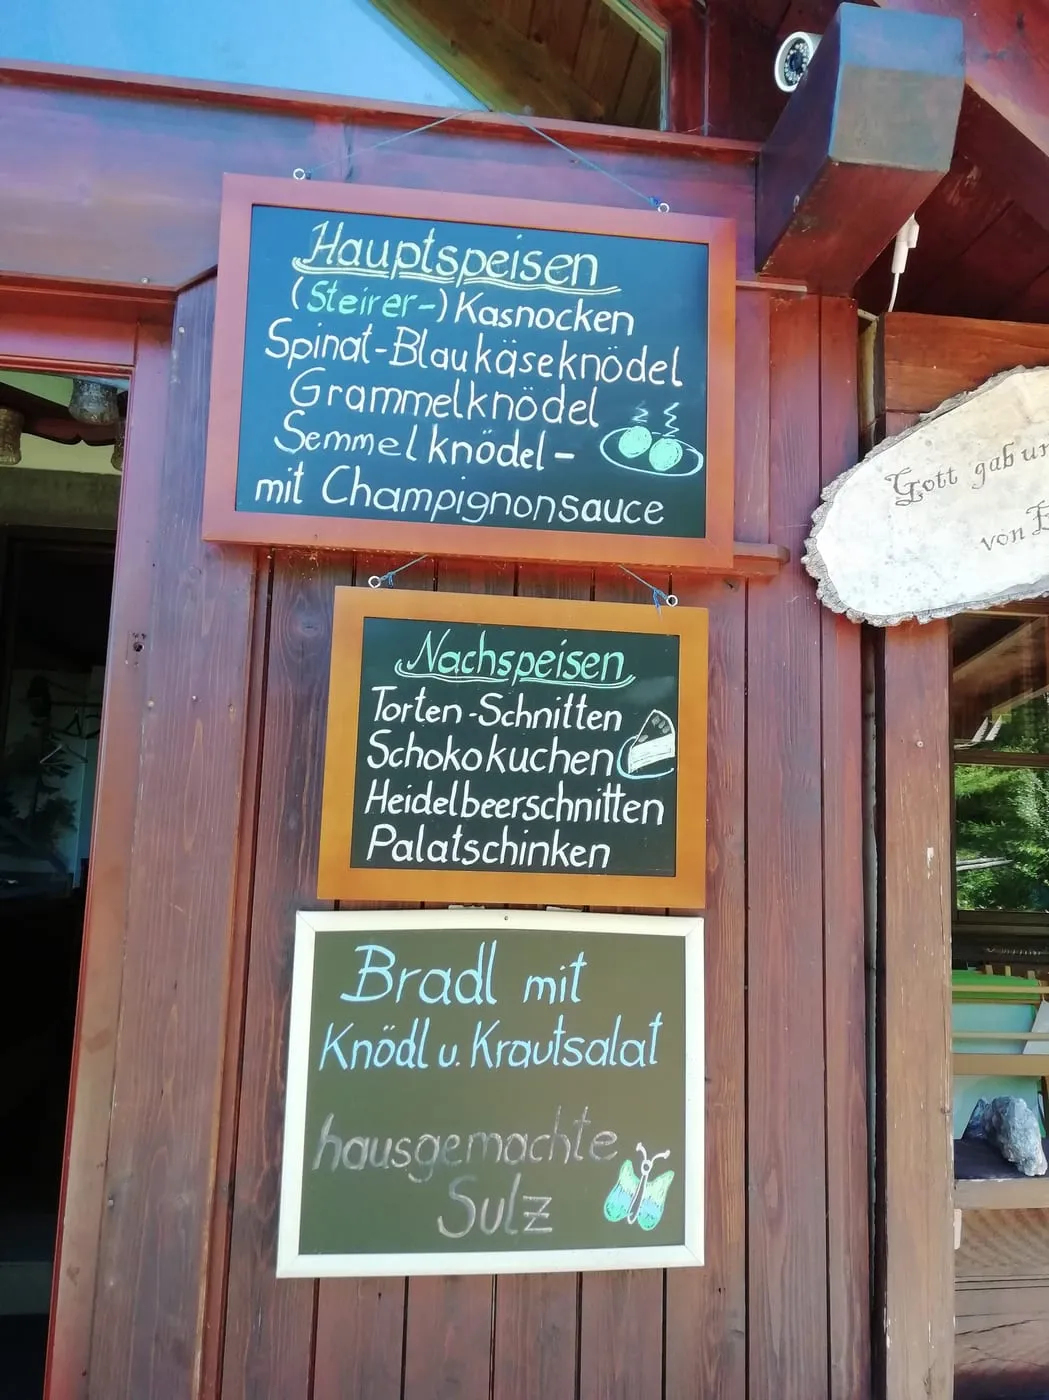 Hauptspeisen
(Steirer-) Kasnocken
Spinat-Blaukäseknödel
Grammelknödel
Semmelknödel-
mit Champignonsauce
Gott gab un
von
Nachspeisen
Torten-Schnitten
Schokokuchen
Heidelbeerschnitten
Palatschinken
Bradl mit
Knödl u. Krautsalat
hausgemachte
Sulz